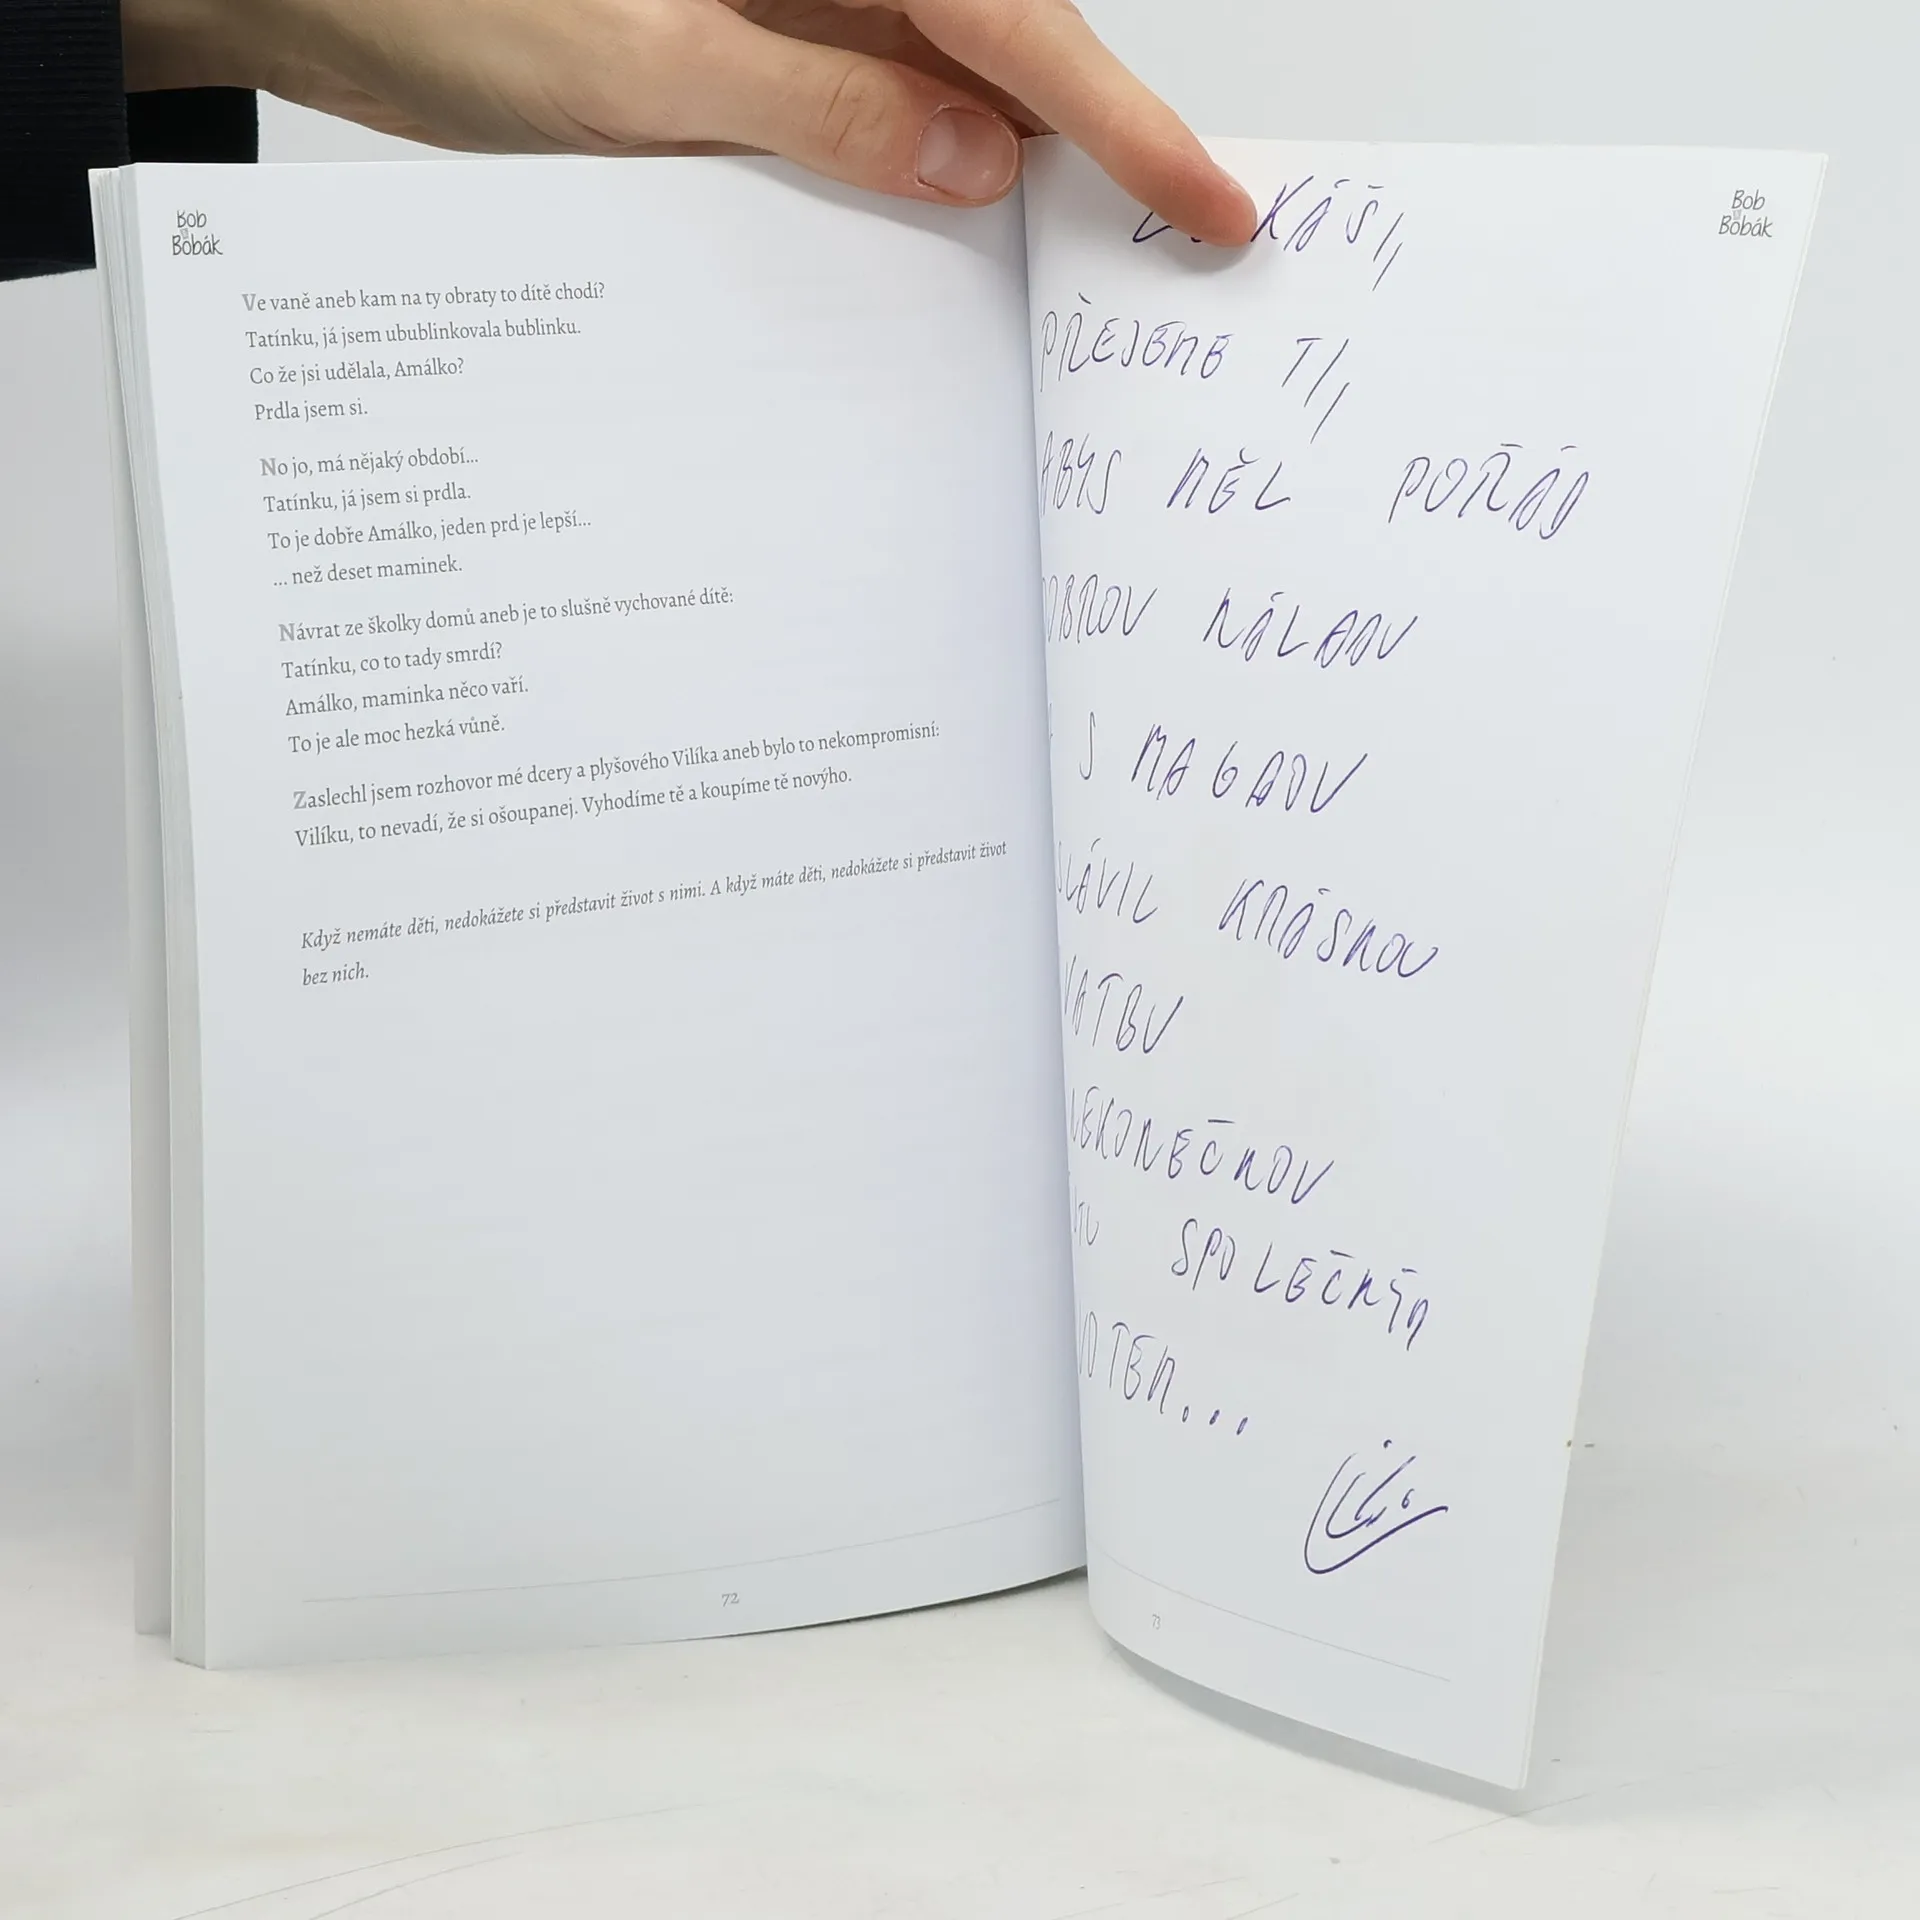 Bob
Bobák
Ve vaně aneb kam na ty obraty to dítě chodí?
Tatínku, já jsem ubublinkovala bublinku.
Co že jsi udělala, Amálko?
Prdla jsem si.
No jo, má nějaký období...
Tatínku, já jsem si prdla.
To je dobře Amálko, jeden prd je lepší...
... než deset maminek.
Návrat ze školky domů aneb je to slušně vychované dítě:
Tatínku, co to tady smrdí?
Amálko, maminka něco vaří.
To je ale moc hezká vůně.
Zaslechl jsem rozhovor mé dcery a plyšového Vilíka aneb bylo to nekompromisní:
Vilíku, to nevadí, že si ošoupanej. Vyhodíme tě a koupíme tě novýho.
Když nemáte děti, nedokážete si představit život s nimi. A když máte děti, nedokážete si představit život
bez nich.
72
Bob
Bobák
KÁŠI,
PŘEJEME TI,
ABYS MĚL POŘÁD
DOBROU NÁLADU
S MAGDOU
SLÁVIL KRÁSNOU
VATBU
NEKONEČNOU
SPOLEČNÝM
VOTEM...
73